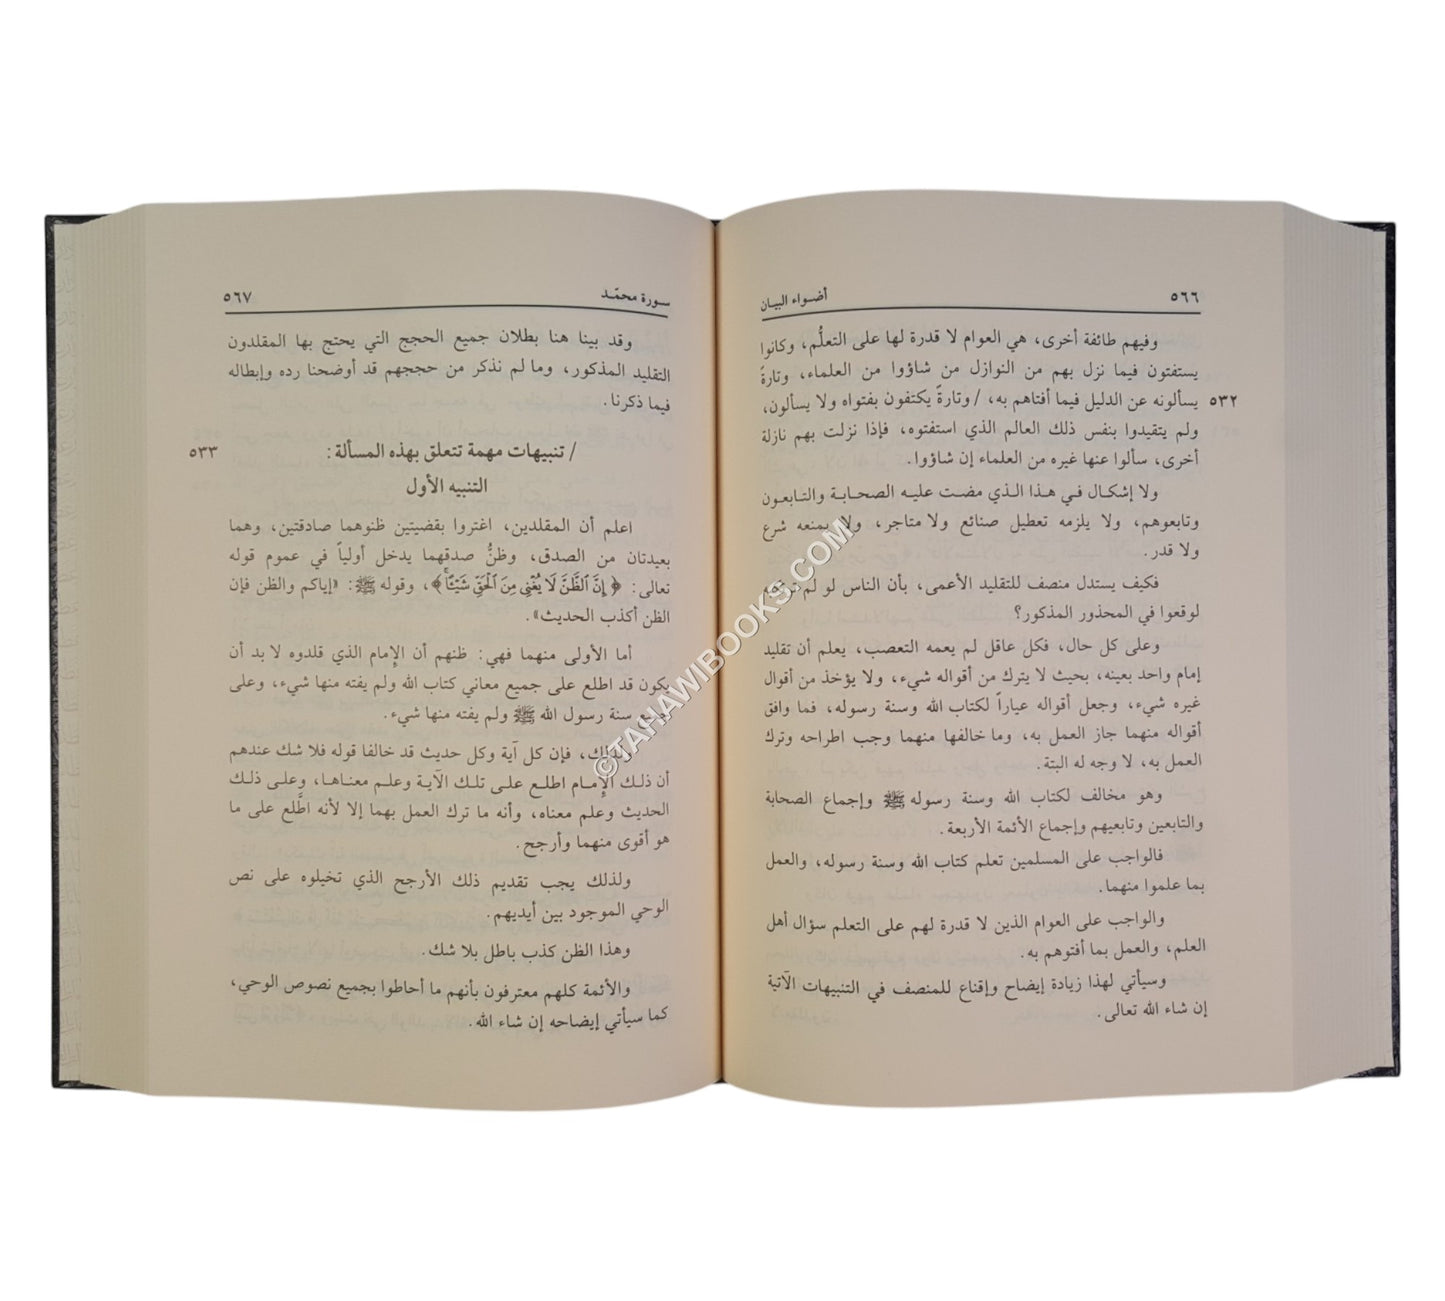 ٥٦٦ أضواء البيان
وفيهم طائفة أخرى، هي العوام لا قدرة لها على التعلُّم، وكانوا
يستفتون فيما نزل بهم من النوازل من شاؤوا من العلماء، وتارةً
٥٣٢ يسألونه عن الدليل فيما أفتاهم به، / وتارةً يكتفون بفتواه ولا يسألون،
ولم يتقيدوا بنفس ذلك العالم الذي استفتوه، فإذا نزلت بهم نازلة
أخرى، سألوا عنها غيره من العلماء إن شاؤوا.
ولا إشكال في هذا الذي مضت عليه الصحابة والتابعون
وتابعوهم، ولا يلزمه تعطيل صنائع ولا متاجر، ولا يمنعه شرع
ولا قدر.
فكيف يستدل منصف للتقليد الأعمى، بأن الناس لو لم
لوقعوا في المحذور المذكور؟
وعلى كل حال، فكل عاقل لم يعمه التعصب، يعلم أن تقليد
إمام واحد بعينه، بحيث لا يترك من أقواله شيء، ولا يؤخذ من أقوال
غيره شيء، وجعل أقواله عياراً لكتاب الله وسنة رسوله، فما وافق
أقواله منهما جاز العمل به، وما خالفها منهما وجب اطراحه وترك
العمل به، لا وجه له البتة.
وهو مخالف لكتاب الله وسنة رسوله ﷺ وإجماع الصحابة
والتابعين وتابعيهم وإجماع الأئمة الأربعة.
فالواجب على المسلمين تعلم كتاب الله وسنة رسوله، والعمل
بما علموا منهما.
والواجب على العوام الذين لا قدرة لهم على التعلم سؤال أهل
العلم، والعمل بما أفتوهم به.
وسيأتي لهذا زيادة إيضاح وإقناع للمنصف في التنبيهات الآتية
إن شاء الله تعالى.
سورة محمّد ٥٦٧
وقد بينا هنا بطلان جميع الحجج التي يحتج بها المقلدون
التقليد المذكور، وما لم نذكر من حججهم قد أوضحنا رده وإبطاله
فيما ذكرنا.
/ تنبيهات مهمة تتعلق بهذه المسألة: ٥٣٣
التنبيه الأول
اعلم أن المقلدين، اغتروا بقضيتين ظنوهما صادقتين، وهما
بعيدتان من الصدق، وظنُّ صدقهما يدخل أولياً في عموم قوله
تعالى: ﴿إِنَّ ٱلظَّنَّ لَا يُغْنِى مِنَ ٱلْحَقِّ شَيْـًٔا﴾، وقوله ﷺ: «إياكم والظن فإن
الظن أكذب الحديث».
أما الأولى منهما فهي: ظنهم أن الإمام الذي قلدوه لا بد أن
يكون قد اطلع على جميع معاني كتاب الله ولم يفته منها شيء، وعلى
سنة رسول الله ﷺ ولم يفته منها شيء.
ولذلك، فإن كل آية وكل حديث قد خالفا قوله فلا شك عندهم
أن ذلك الإمام اطلع على تلك الآية وعلم معناها، وعلى ذلك
الحديث وعلم معناه، وأنه ما ترك العمل بهما إلا لأنه اطَّلع على ما
هو أقوى منهما وأرجح.
ولذلك يجب تقديم ذلك الأرجح الذي تخيلوه على نص
الوحي الموجود بين أيديهم.
وهذا الظن كذب باطل بلا شك.
والأئمة كلهم معترفون بأنهم ما أحاطوا بجميع نصوص الوحي،
كما سيأتي إيضاحه إن شاء الله.
©TAHAWIBOOKS.COM